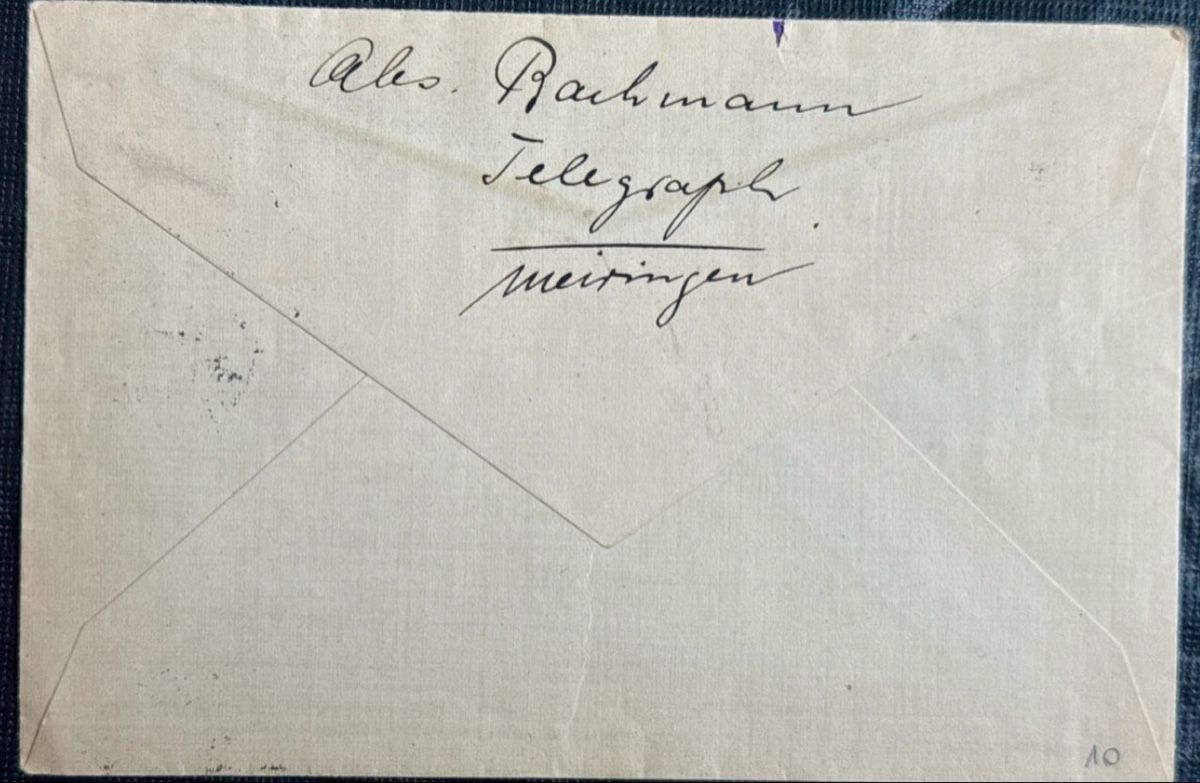 Abs. Bachmann
Telegraph.
Meiringen
10